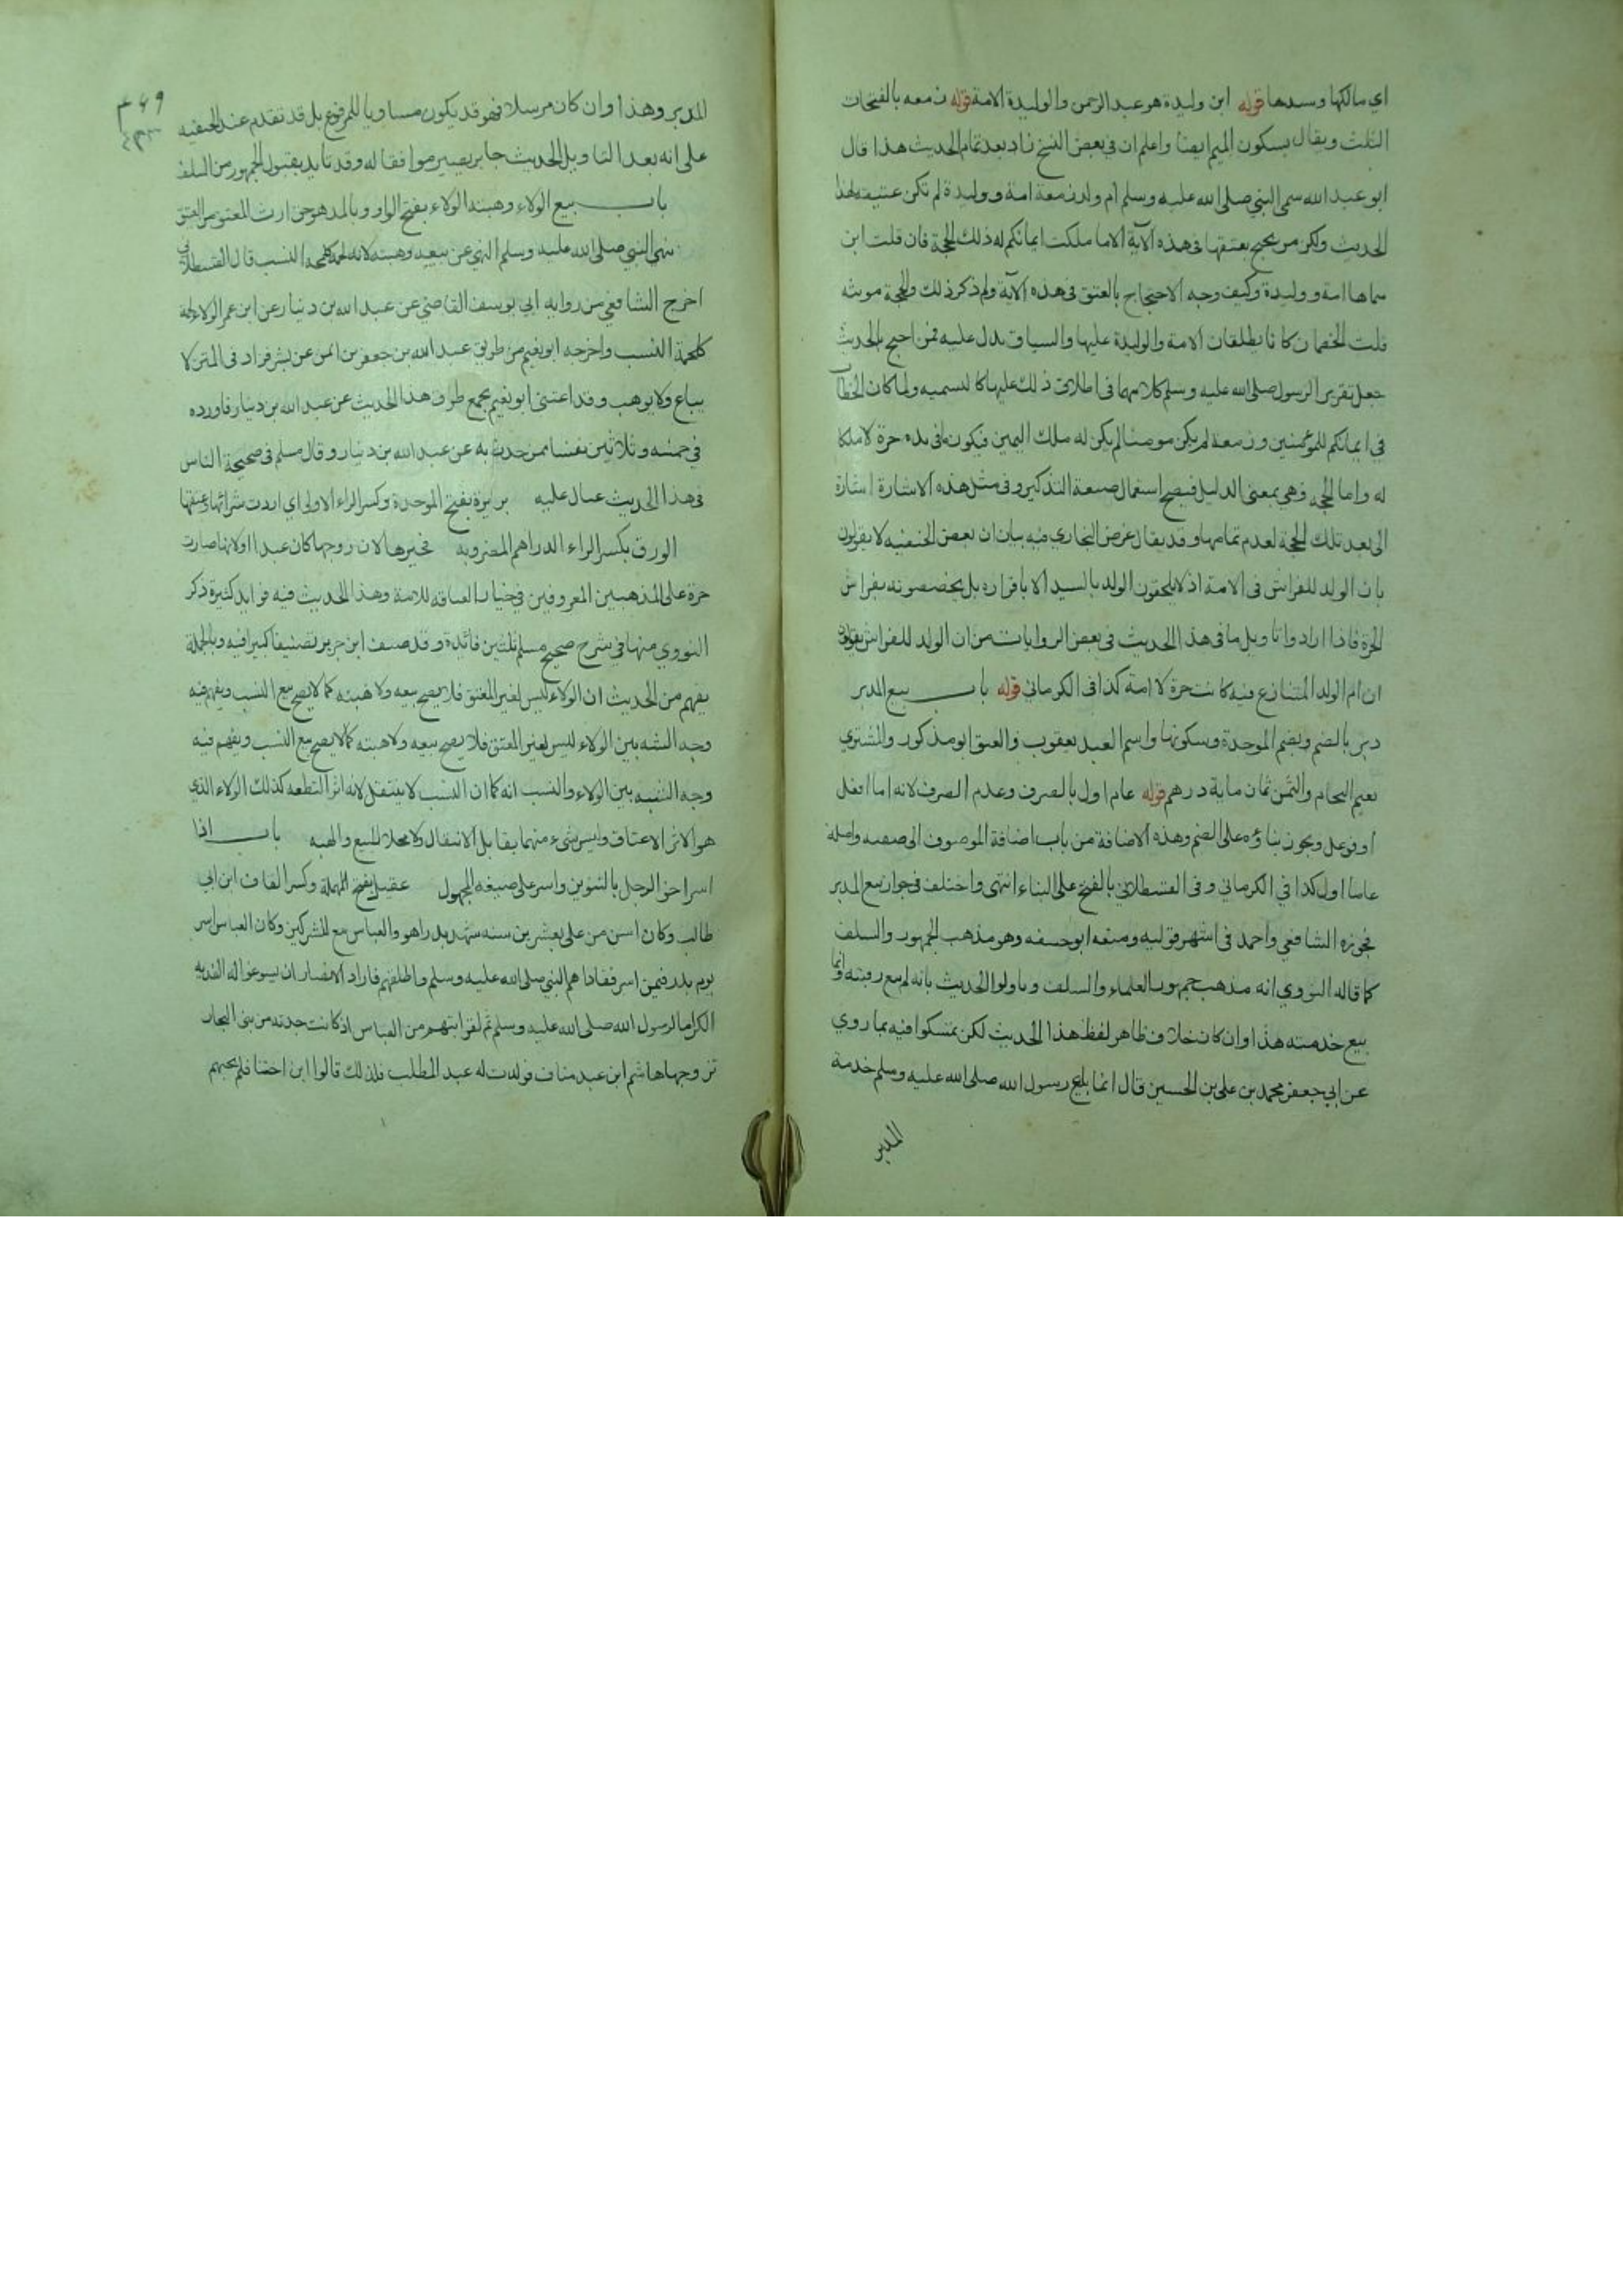 اي مالكها وسيدها قوله ابن وليدة هو عبد الرحمن والوليدة الامة قوله زمعه بالفتحات
الثلث ويقال بسكون الميم ايضا واعلم ان في بعض النسخ زاد بعد تمام الحديث هذا قال
ابو عبد الله سمى النبي صلى الله عليه وسلم ام ولد زمعة امة ووليدة لم تكن عتيقه لهذا
الحديث ولكن من يحتج بعتقها في هذه الآية الا ما ملكت ايمانكم له ذلك الحجة فان قلت اين
سماها امة ووليدة وكيف وجه الاحتجاج بالعتق في هذه الآية ولم ذكر ذلك والحجة مونثه
قلت الخصمان كانا يطلقان الامة والوليدة عليها والسياق يدل عليه فمن احتج بالحديث
جعل تقرير الرسول صلى الله عليه وسلم كلامهما في اطلاق ذلك عليها كالتسميه ولما كان الخطاب
في ايمانكم للمؤمنين وزمعة لم يكن مومنا لم يكن له ملك اليمين فيكون ما في يده حرة لا ملكا
له واما الحجه فهي بمعنى الدليل فيصح استعمال صيغة التذكير وفي مثل هذه الاشارة اشارة
الى بعد تلك الحجة لعدم تمامها وقد يقال غرض البخاري فيه بيان ان بعض الحنفيه لا يقولون
بان الولد للفراش في الامة اذ لا يلحقون الولد بالسيد الا باقراره بل يخصصونه بفراش
الحرة فاذا ارادوا تاويل ما في هذا الحديث في بعض الروايات من ان الولد للفراش يقولون
ان ام الولد المتنازع فيه كانت حرة لا امة كذا في الكرماني قوله باب بيع المدبر
دبر بالضم وبضم الموحدة وسكونها واسم العبد يعقوب والمعتق ابو مذكور والمشتري
نعيم النحام والثمن ثمان ماية درهم قوله عام اول بالصرف وعدم الصرف لانه اما افعل
او فوعل ويجوز بناؤه على الضم وهذه الاضافة من باب اضافة الموصوف الى صفته واصله
عاما اول كذا في الكرماني وفي القسطلاني بالفتح على البناء انتهى واختلف في جواز بيع المدبر
فجوزه الشافعي واحمد في اشهر قوليه ومنعه ابو حنيفه وهو مذهب الجمهور والسلف
كما قاله النووي انه مذهب جمهور العلماء والسلف وتاولوا الحديث بانه لم يبع رقبته وانما
بيع خدمته هذا وان كان خلاف ظاهر لفظ هذا الحديث لكن تمسكوا فيه بما روي
عن ابي جعفر محمد بن علي بن الحسين قال انما باع رسول الله صلى الله عليه وسلم خدمة
المدبر
٣٤٩
المدبر وهذا وان كان مرسلا فهو قد يكون مساويا للمرفوع بل قد تقدم عند الحنفيه
على انه بعد التاويل الحديث جابر يصير موافقا له وقد تايد بقبول الجمهور من السلف
باب بيع الولاء وهبته الولاء بفتح الواو وبالمد هو حق ارث المعتق من العتيق
نهى النبي صلى الله عليه وسلم النهي عن بيعه وهبته لانه لحمة كلحمة النسب قال القسطلاني
اخرج الشافعي من روايه ابي يوسف القاضي عن عبد الله بن دينار عن ابن عمر الولاء لحمة
كلحمة النسب واخرجه ابو نعيم من طريق عبد الله بن جعفر بن اعين عن بشر فزاد في المتن لا
يباع ولا يوهب وقد اعتنى ابو نعيم بجمع طرق هذا الحديث عن عبد الله بن دينار فاورده
في خمسه وثلاثين نفسا ممن حدث به عن عبد الله بن دينار وقال مسلم في صحيحه الناس
في هذا الحديث عيال عليه بريرة بفتح الموحدة وكسر الراء الاولى اي اردت شرائها وعتقها
الورق بكسر الراء الدراهم المضروبه فخيرها لان زوجها كان عبدا او لانها صارت
حرة على المذهبين المعروفين في خيار العتاقه للامة وهذا الحديث فيه فوايد كثيرة ذكر
النووي منها في شرح صحيح مسلم ثلثين فائدة وقد صنف ابن جرير تصنيفا كبيرا فيه وبالجملة
يفهم من الحديث ان الولاء ليس لغير المعتق فلا يصح بيعه ولا هبته كما لا يصح بيع النسب ويفهم فيه
وجه الشبه بين الولاء ليس لغير المعتق فلا يصح بيعه ولا هبته كما لا يصح بيع النسب ويفهم فيه
وجه الشبه بين الولاء والنسب انه كما ان النسب لا ينتقل لانه اثر النطفه كذلك الولاء الذي
هو الاثر الاعتاق وليس شيء منهما يقابل الانتقال ولا محلا للبيع والهبه باب اذا
اسر اخو الرجل بالتنوين واسر على صيغه المجهول عقيل بفتح المهملة وكسر القاف ابن ابي
طالب وكان اسن من علي بعشرين سنه شهد بدرا هو والعباس مع المشركين وكان العباس اسر
يوم بدر فيمن اسر ففاداهم النبي صلى الله عليه وسلم واطلقهم فاراد الانصار ان يسوغوا له الفديه
اكراما لرسول الله صلى الله عليه وسلم ثم لقرابتهم من العباس اذ كانت جدته من بني النجار
تزوجها هاشم ابن عبد مناف فولدت له عبد المطلب فلذلك قالوا ابن اختنا فلم يجبهم